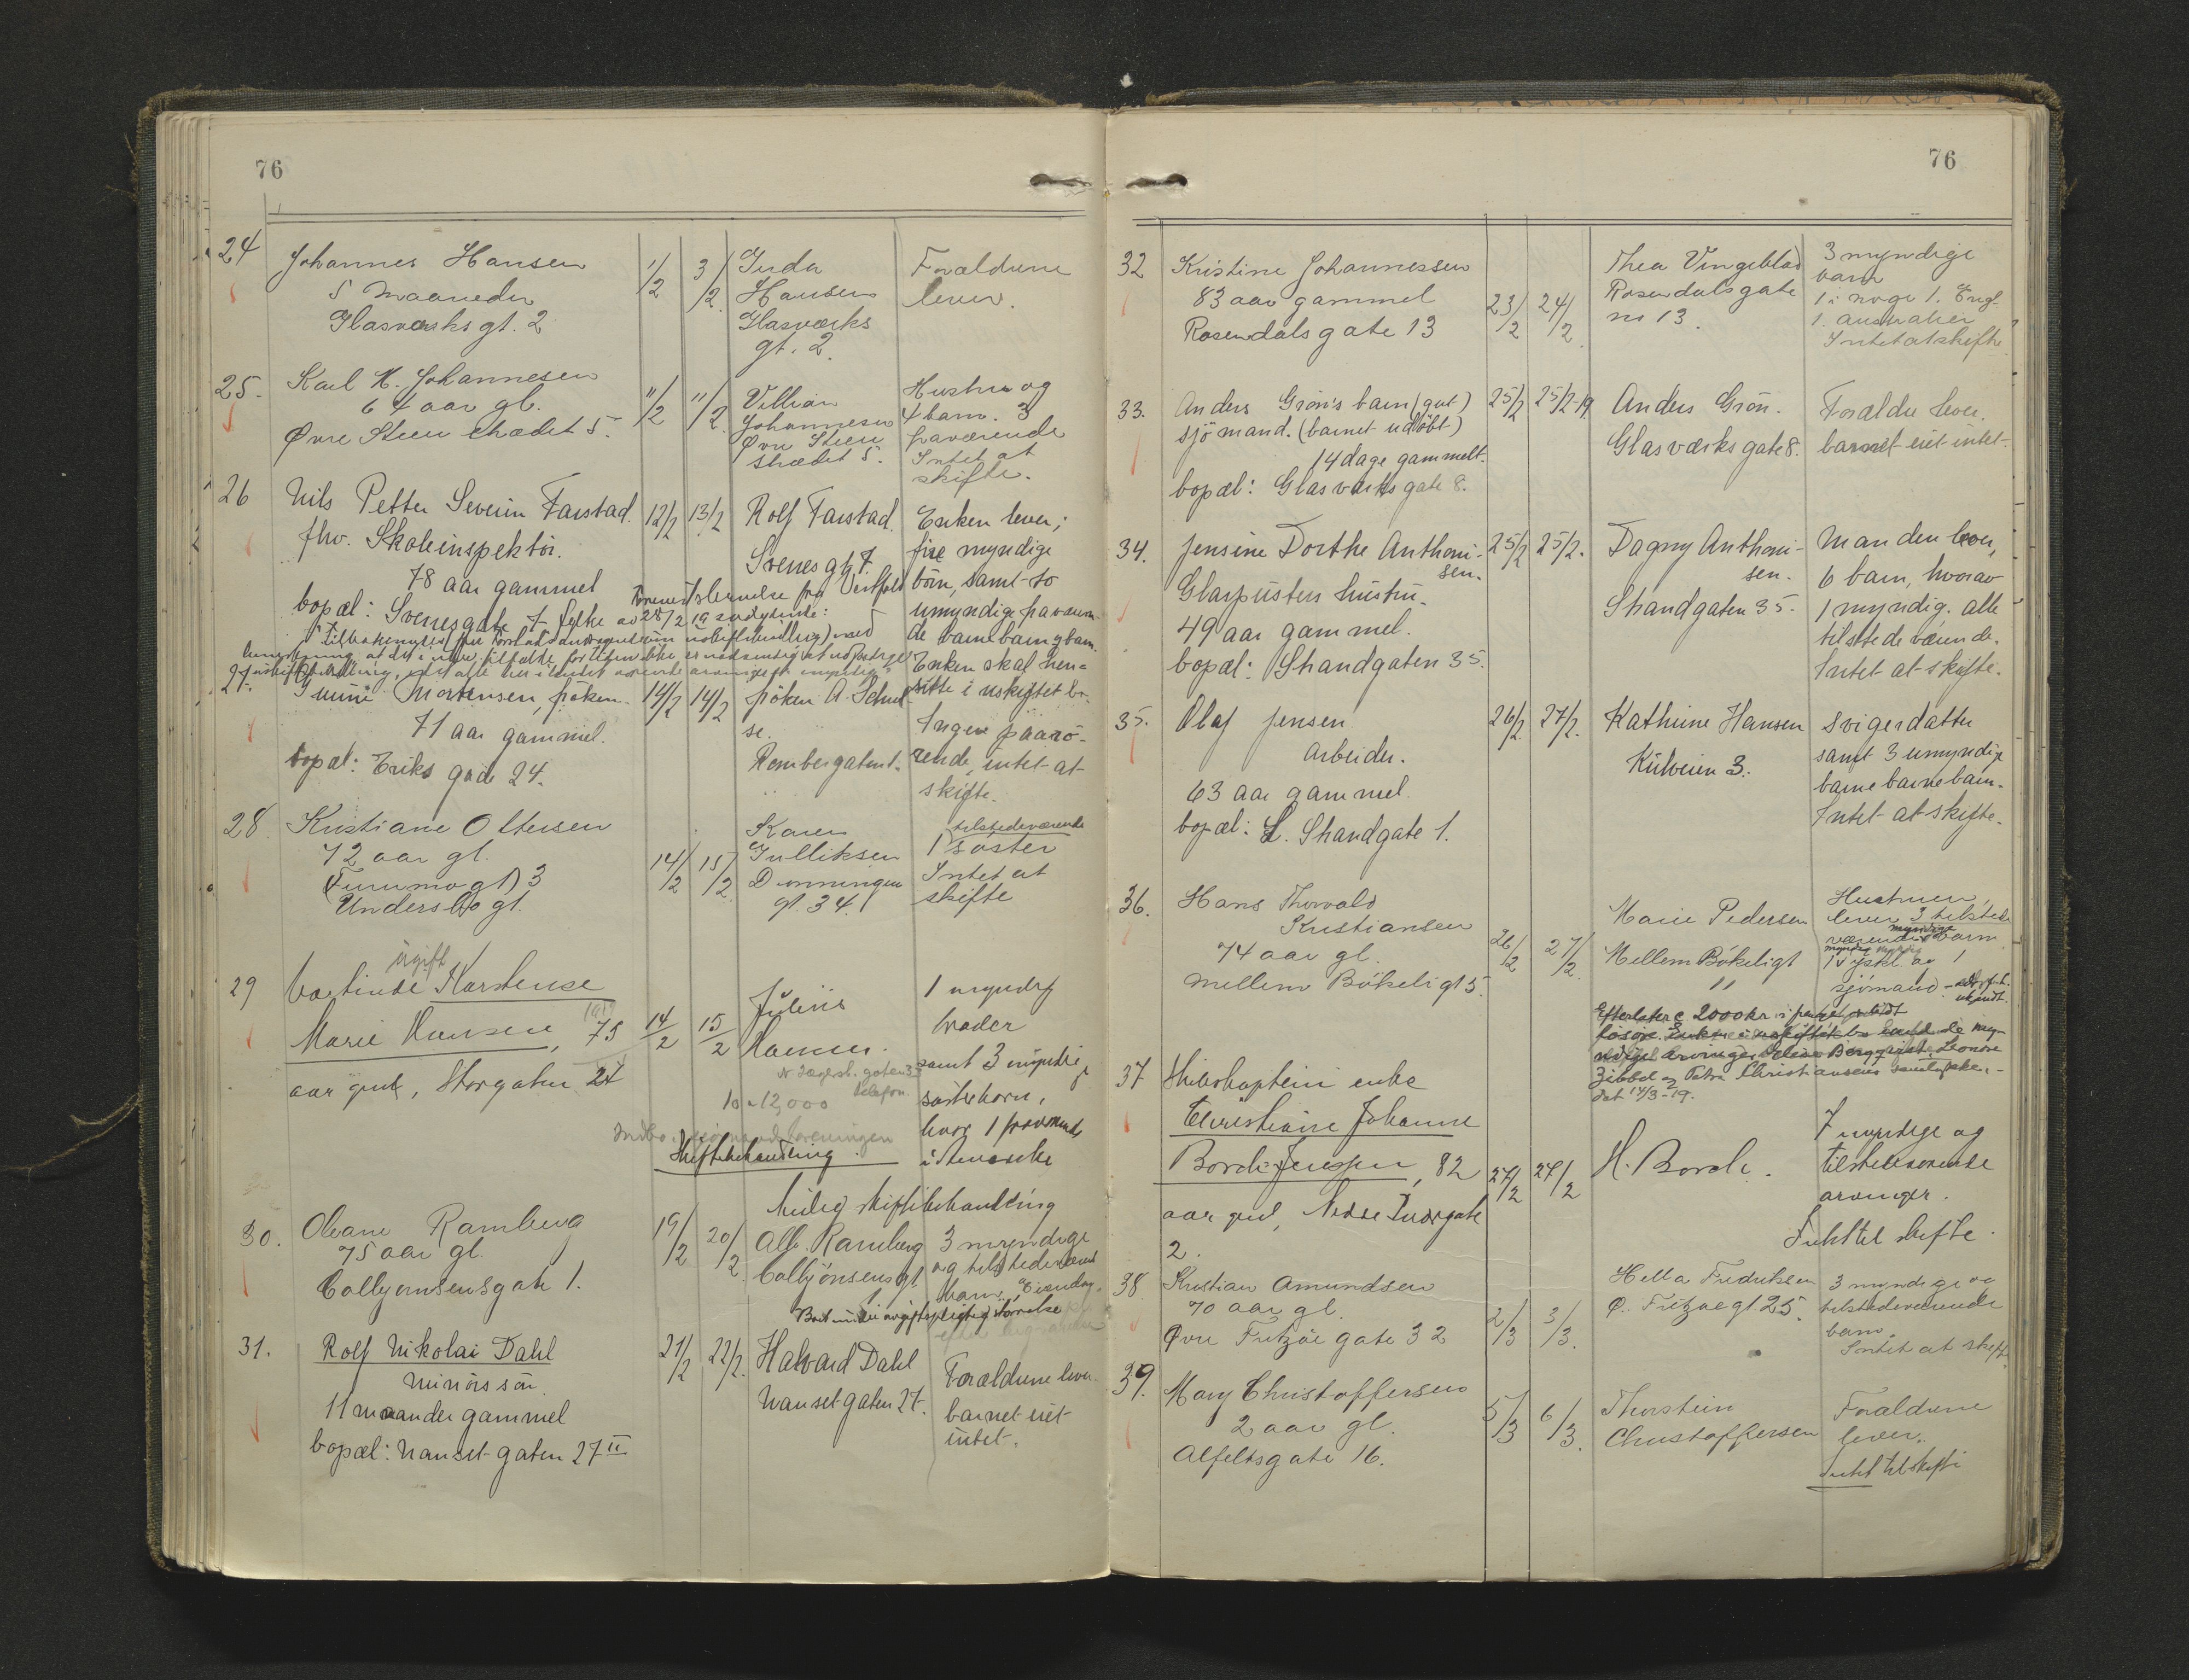 76
24
Johannes Hansen
5 Maaneder
Glasværksgt. 2
1/2
3/2
Hansen
Glasværks
gt. 2.
Forældrene
lever.
25.
Karl H. Johannesen
64 aar gl.
Øvre Steen strædet 5.
11/2
11/2
Villian
Johannesen
Øvre Steen
strædet 5.
Hustru og
4 barn. 3
fraværende
Intet at
skifte.
26
Nils Petter Severin Farstad.
fhv. Skoleinspektör.
78 aar gammel
bopæl: Svenesgate 7
12/2
13/2
Rolf Farstad.
Svenesgt. 7.
Enken lever;
fire myndige
börn, samt to
umyndige fraværen-
de barnebarnsbarn.
Enken skal hen-
sitte i uskiftet bo.
27.
Mortensen, fröken.
71 aar gammel.
bopæl: Eriks gade 24.
14/2
14/2
fröken A. Schul-
se.
Rombergatent.
Ingen paarö-
rende, intet at
skifte.
28
Kristiane Oltersen
72 aar gl.
(Furumogt) 3
Undersbo gt.
14/2
15/2
Karen
Gulliksen
Dronningen
gt. 34.
tilstedeværende
1 søster
Intet at
skifte
29
ugift
Værtinde Karstense
Marie Hansen, 75
aar gml, Storgaten 27
14/2
15/2
Julius
Hansen.
10 a 12,000
telefon
Skiftebehandling.
1 myndig
broder
samt 3 myndige
søsterbørn,
hvor 1 fraværende
i Amerika
30.
Oleane Ramberg
75 aar gl.
Collbjørnsensgate 1.
19/2
20/2
Heidig skiftebehandling
Alb. Ramberg
Colbjönsensgt.
3 myndige
og tilstedeværend
barn.
31.
Rolf Nikolai Dahl
Minörs sön.
11 maander gammel
bopæl: Nanset gaten 27 II
21/2
22/2.
Halvard Dahl
Nanset gaten 27.
Forældrene lever.
barnet eiet
intet.
76
32
Kristine Johannessen
83 aar gammel
Rosendalsgate 13
23/2
24/2
Thea Vingeblad
Rosendalsgate
nr 13.
3 myndige
barn
1 i norge 1. Engl.
1. australien
Intet at skifte
33.
Anders Gröns barn (gut)
sjömand. (barnet udöbt)
14 dage gammelt.
bopæl: Glasværksgate 8.
25/2
25/2-19
Anders Grön.
Glasværksgate 8.
Forældre lever.
barnet eiet intet.
34.
Jensine Dorthe Anthoni-
sen.
Glaspusters hustru.
49 aar gammel.
bopæl: Strandgaten 35.
25/2
25/2.
Dagny Anthoni-
sen.
Strandgaten 35.
Manden lever,
6 barn, hvorav
1 myndig. alle
tilstedeværende.
Intet at skifte.
35.
Olaf Jensen
Arbeider.
63 aar gammel.
bopæl: L. Strandgate 1.
26/2
27/2.
Kathrine Hansen
Kulveien 3.
svigerdatter
samt 3 umyndige
barnebarnebarn.
Intet at skifte.
36.
Hans Thorvald
Kristiansen
74 aar gl.
Mellem Bökeligt 5.
26/2
27/2.
Marie Pedersen
Mellem Bökeligt
Hustruen
lever 3 tilstede
værende myndige barn
sjömand
Efterlater c 2000 kr
dat 14/3-19.
37
Skibskaptein enke
Christiane Johanne
Borch-Jenssen, 82
aar gml, Nedre Torvgate
2.
27/2
27/2
H. Borch.
7 myndige og
tilstedeværende
arvinger.
Intet til skifte.
38.
Kristian Amundsen
70 aar gl.
Øvre Fritzøe gate 32
2/3
3/3.
Hella Fredriksen
Ø. Fritzøegt 25.
3 myndige og
tilstedeværende
barn.
Intet at skifte.
39.
Mary Christoffersen
2 aar gl.
Alfeltsgate 16.
5/3
6/3.
Thorstein
Christoffersen
Forældrene
lever.
Intet til skifte